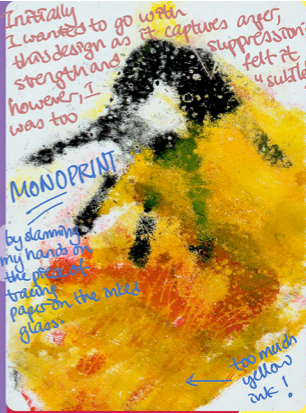 Initially
I wanted to go with
this design as it captures anger,
strength and suppression
however, I felt it
was too subtle
MONOPRINT
by slamming
my hands on
the piece of
tracing
paper on the inked
glass.
too much
yellow
ink!